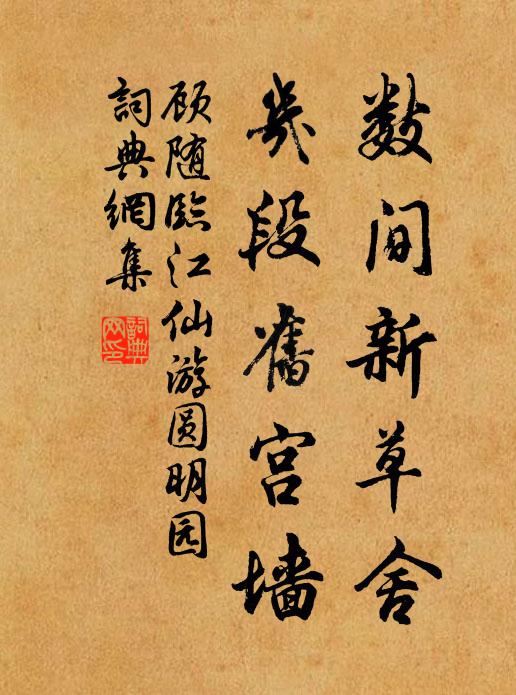 数间新草舍
几段舊宫墙
顾随臨江仙游圆明园
詞典網集
詞典
网印